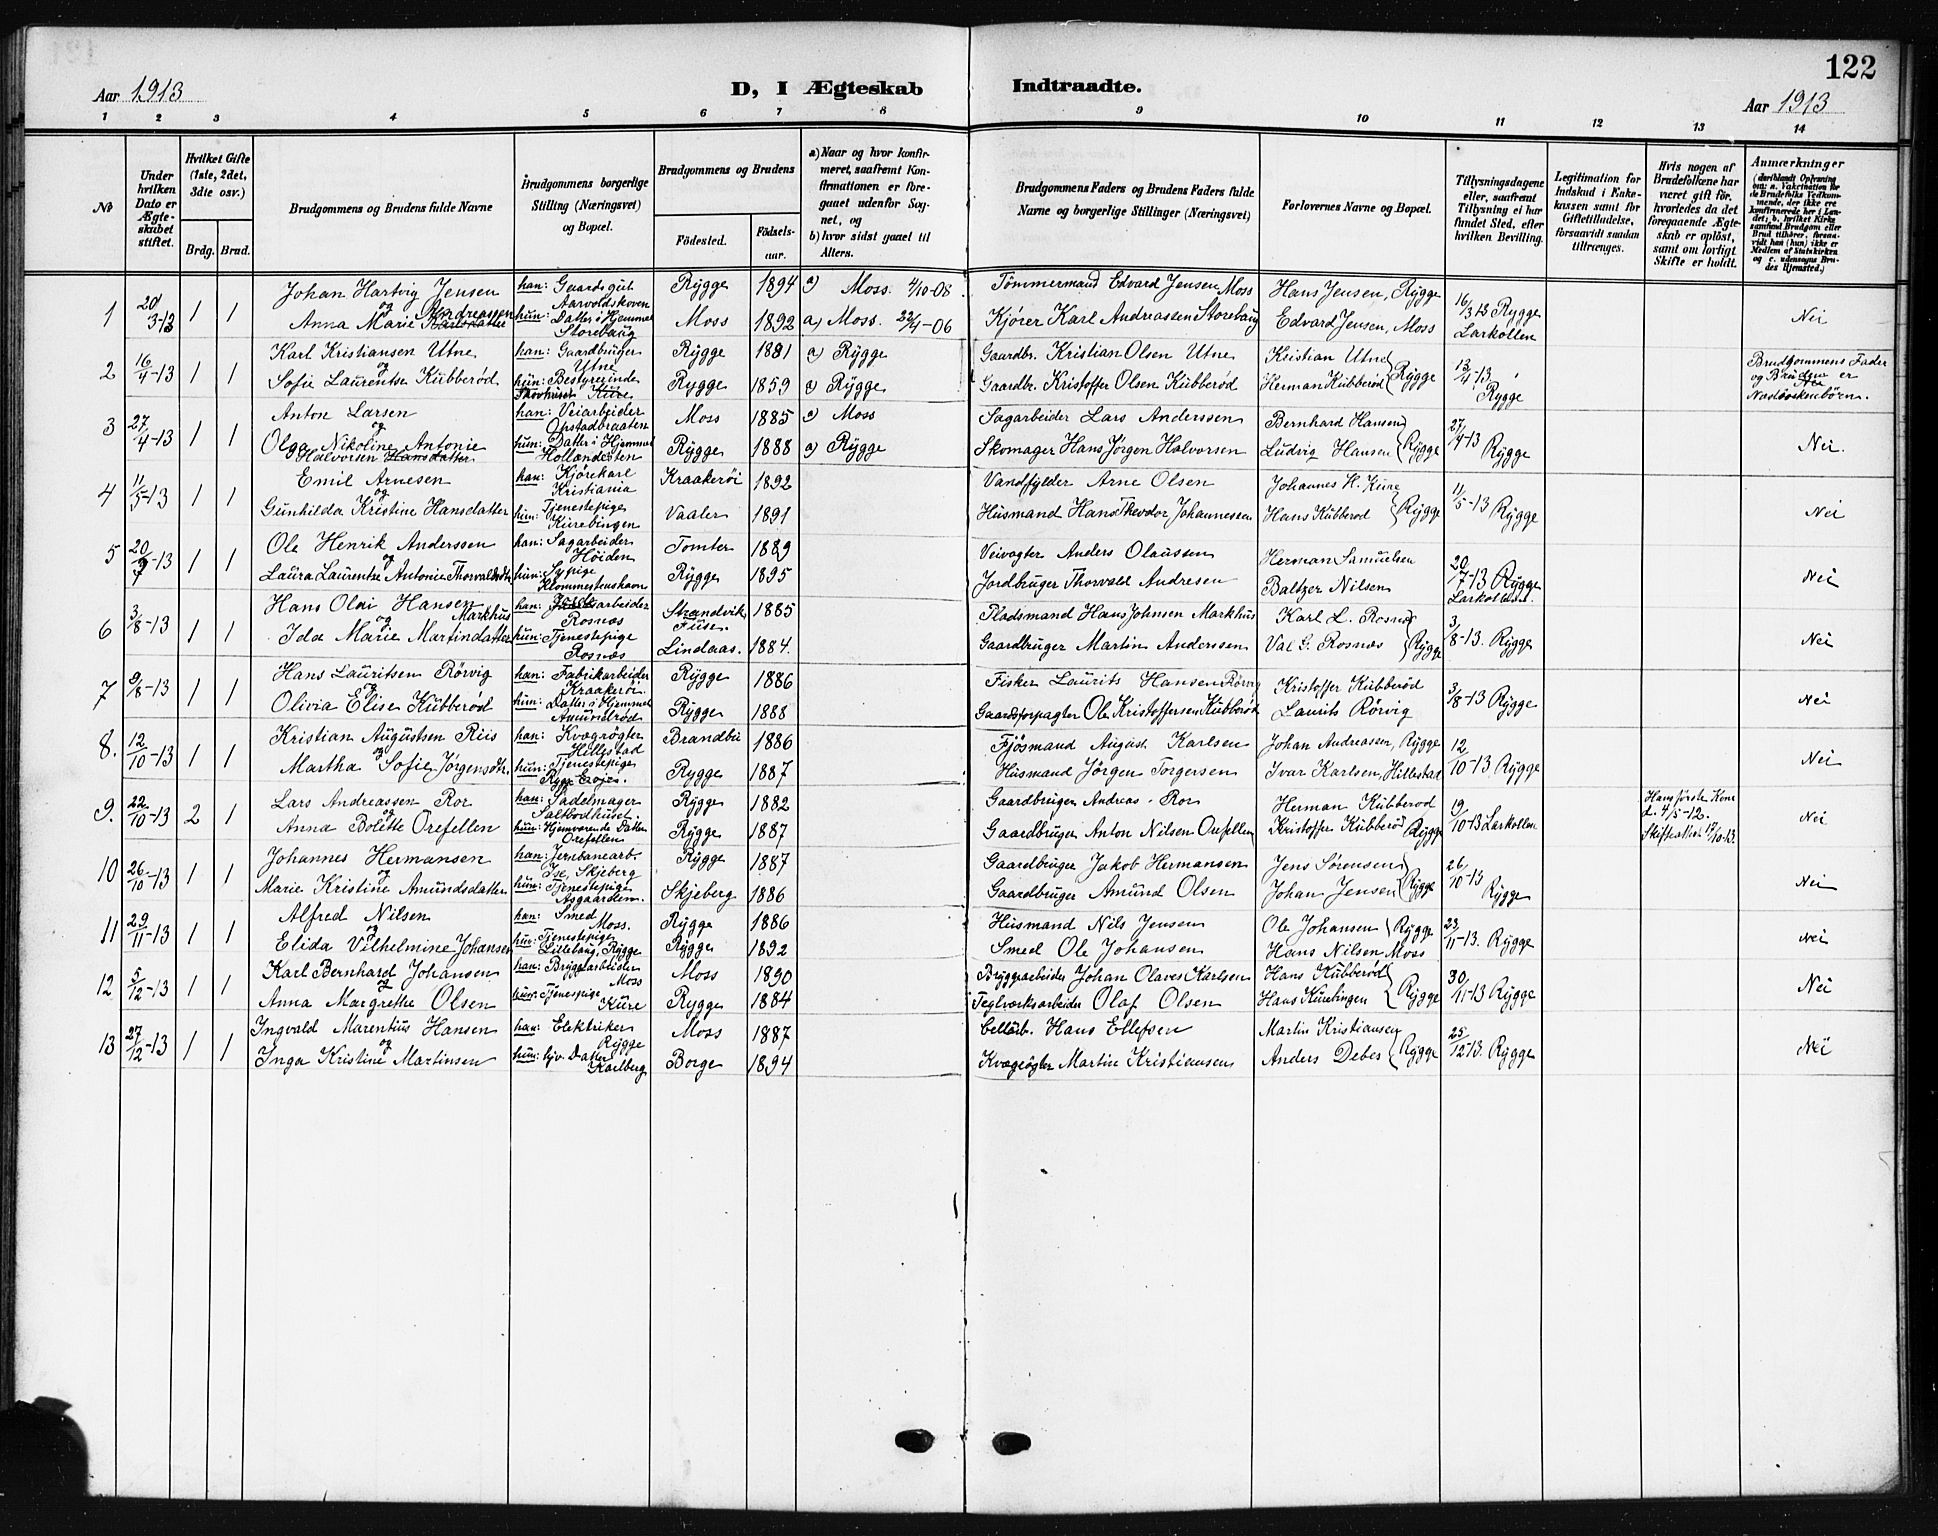 122
Aar 1913
D, I Ægteskab Indtraadte.
Aar 1913
1 2 3 4 5 6 7 8 9 10 11 12 13 14
No
Under hvilken Dato er Ægteskabet stiftet.
Hvilket Gifte (1ste, 2det, 3die osv.)
Brdg. Brud.
Brudgommens og Brudens fulde Navne
Brudgommens borgerlige Stilling (Næringsvei) og Bopæl.
Brudgommens og Brudens
Fødested.
Fødselsaar.
a) Naar og hvor konfirmeret, saafremt Konfirmationen er foregaaet udenfor Sognet, og
b) hvor sidst gaaet til Alters.
Brudgommens Faders og Brudens Faders fulde Navne og borgerlige Stillinger (Næringsvei)
Forlovernes Navne og Bopæl.
Tillysningsdagene eller, saafremt Tillysning ei har fundet Sted, efter hvilken Bevilling.
Legitimation for Indskud i Enkekassen samt for Giftetilladelse, forsaavidt saadan tiltrænges.
Hvis nogen af Brudefolkene har været gift før, hvorledes da det foregaaende Ægteskab er opløst, samt om lovligt Skifte er holdt.
Anmærkninger
1 20/3-13 1 1 Johan Hartvig Jensen han: Gaardsgut Aarvoldskoven Rygge 1894 a) Moss 4/10-08. Tømmermand Edvard Jensen Moss Hans Jensen, Rygge 16/3 13 Rygge
og Anna Marie Andreassen Karlsdatter hun: Datter i Hjemmet Storebaug Moss 1892 a) Moss. 22/4-06 Kjører Karl Andreassen Storebaug Edvard Jensen, Moss Larkollen Nei
2 16/4-13 1 1 Karl Kristiansen Utne han: Gaardbruger Utne Rygge 1881 a) Rygge Gaardbr. Kristian Olsen Utne Kristian Utne 13/4-13 Rygge Brudgommens Fader og Bruden er Næstsøskenbørn.
og Sofie Laurentse Kubberød hun: Bestyrerinde Skovhuset Kure Rygge 1859 a) Rygge Gaardbr. Kristoffer Olsen Kubberød Herman Kubberød Rygge Nei
3 27/4-13 1 1 Anton Larsen han: Veiarbeider Opstadbraaten Moss 1885 a) Moss Sagarbeider Lars Anderssen Bernhard Hansen 27/4-13 Rygge
og Olga Nikoline Antonie Halvorsen Hansdatter hun: Datter i Hjemmet Hollendesten Rygge 1888 a) Rygge Skomager Hans Jørgen Halvorsen Ludvig Hansen Rygge Nei.
4 11/5-13 1 1 Emil Arnesen han: Kjørekarl Kristiania Kraakerøi 1892 Vandfylder Arne Olsen Johannes H. Kure 11/5-13 Rygge
og Gunhilda Kristine Hansdatter hun: Tjenestepige Kurebingen Vaaler 1891 Husmand Hans Theodor Johannessen Hans Kubberød Rygge Nei
5 20/7-13 1 1 Ole Henrik Anderssen han: Sagarbeider Høiden Tomter 1889 Veivogter Anders Olaussen Herman Samuelsen 20/7-13 Rygge
og Laura Laurentse Antonie Thorvaldsdtr. hun: Sypige Klommestenshavn Rygge 1895 Jordbruger Thorvald Andresen Baltzer Nilsen Larkollen. Nei
6 3/8-13 1 1 Hans Olai Hansen Markhus han: arbeider Rosnæs Strandvik Fuse. 1885 Pladsmand Hans Johnsen Markhus Karl L. Rosnæs 3/8-13. Rygge
og Ida Marie Martinsdatter hun: Tjenestepige Rosnæs Lindaas. 1884. Gaardbruger Martin Anderssen Val G. Rosnæs Rygge Nei
7 9/8-13 1 1 Hans Lauritsen Rørvig han: Fabrikarbeider Kraakerøi. Rygge 1886 Fisker Laurits Hansen Rørvig Kristoffer Kubberød 3/8-13 Rygge
og Olivia Elise Kubberød hun: Datter i Hjemmet Amundrød Rygge 1888 Gaardsforpagter Ole Kristoffersen Kubberød Laurits Rørvig Nei
8. 12/10-13 1 1 Kristian Augustsen Riis han: Kvægrøgter Hillestad Brandbu 1886 Fjøsmand August Karlsen Johan Andreassen, Rygge 12/10-13 Rygge
og Martha Sofie Jørgensdtr. hun: Tjenestepige Rygge 1887 Husmand Jørgen Torgersen Ivar Karlsen, Hillestad Nei
9. 22/10-13 2 1 Lars Andreassen Ror han: Sadelmager Saltbodhuset. Rygge 1882 Gaardbruger Andreas Ror Herman Kubberød 19/10-13 Larkollen Hans første Kone d. 4/5-12. Skifteattest 17/10-13.
og Anna Bolette Orefellen hun: Hjemværende Datter Orefellen Rygge 1887 Gaardbruger Anton Nilsen Orefellen Kristoffer Kubberød Rygge Nei
10 26/10-13 1 1 Johannes Hermansen han: Jernbanearb. Ise, Skjeberg Rygge 1887 Gaardbruger Jakob Hermansen Jens Sørensen 26/10-13 Rygge
og Marie Kristine Amundsdatter hun: Tjenestepige Asgaarden. Skjeberg 1886 Gaardbruger Amund Olsen Johan Jensen Rygge Nei
11 29/11-13 1 1 Alfred Nilsen han: Smed Moss. Rygge 1886 Husmand Nils Jensen Ole Johansen Rygge 23/11-13. Rygge
og Elida Vilhelmine Johansen hun: Tjenestepige Lillebaug, Rygge Rygge 1892 Smed Ole Johansen Hans Nilsen Moss Nei
12 5/12-13 1 1 Karl Bernhard Johansen han: Bryggearbeider Moss Moss 1890 Bryggearbeider Johan Olaves Karlsen Hans Kubberød 30/11-13 Rygge
og Anna Margrethe Olsen hun: Tjenespige Kure Rygge 1884 Teglværksarbeider Olaf Olsen Hans Kurebingen Rygge Nei
13 27/12-13 1 1 Ingvald Marentius Hansen han: Elektriker Rygge Moss 1887 Cellarb. Hans Ellefsen Martin Kristiansen 25/12-13. Rygge
og Inga Kristine Martinsen hun: hjv. Datter Karlberg Borge 1894 Kvægrøgter Martin Kristiansen Anders Debes Rygge Nei